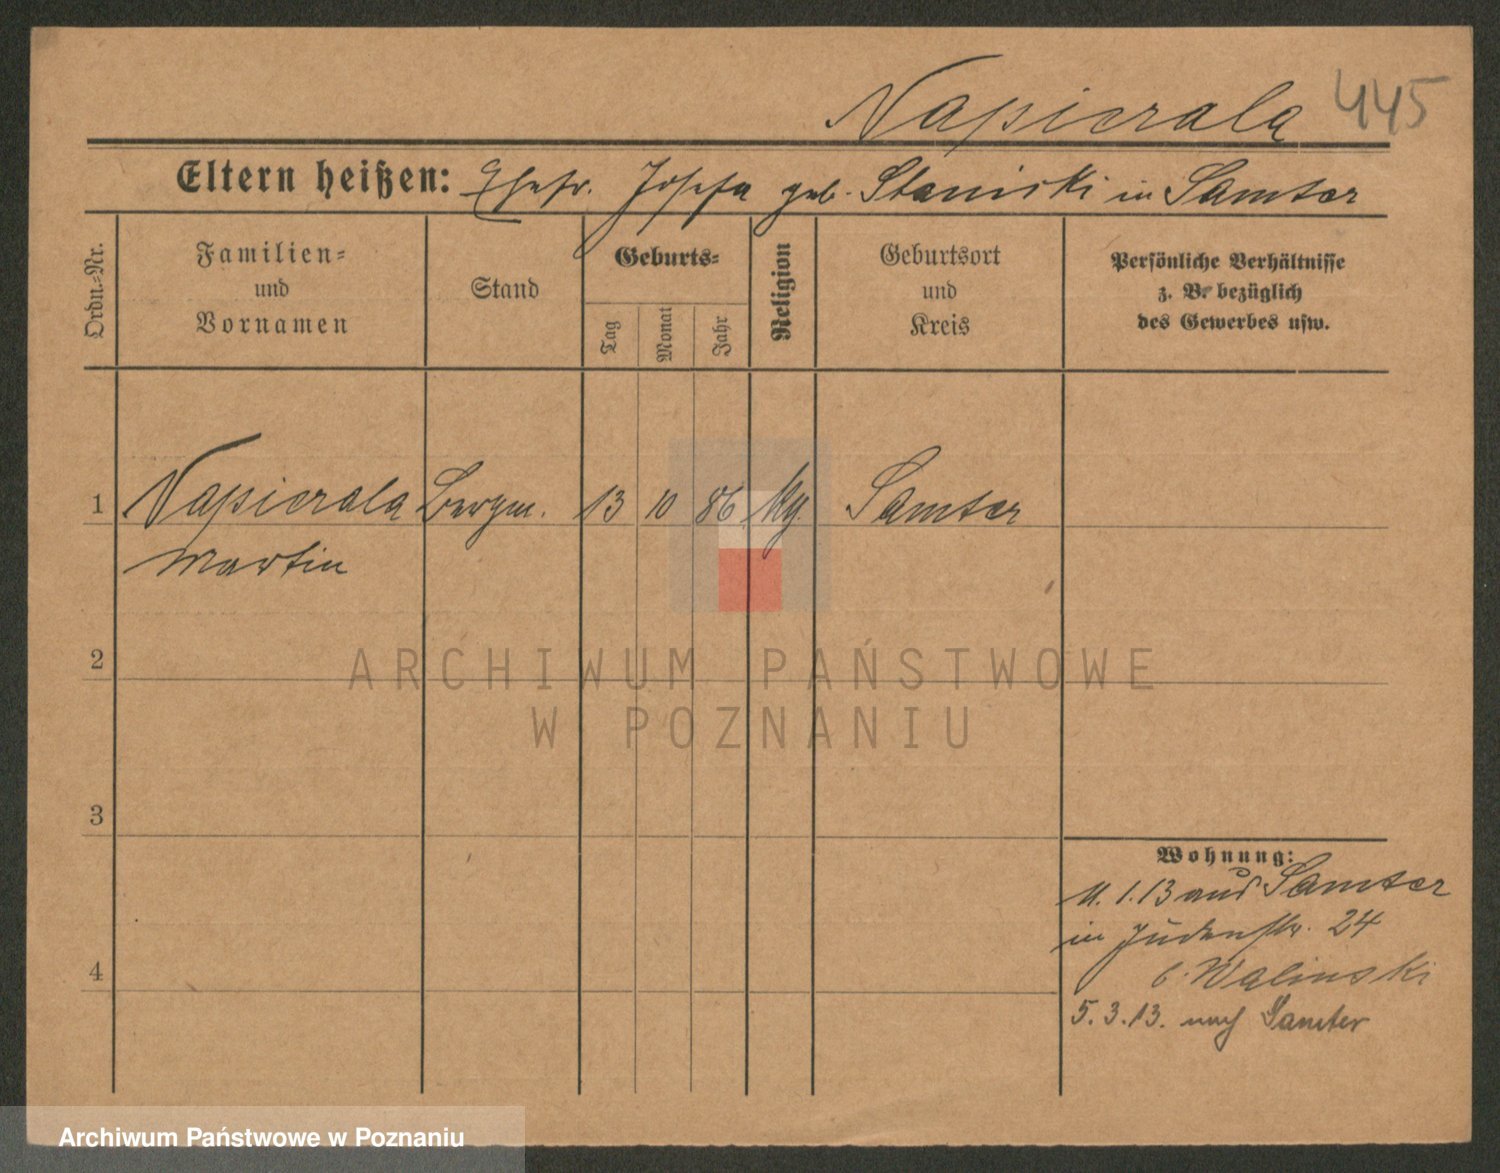 Napierala 445
Eltern heißen: Ehefr. Josefa geb. Staniski in Samter
Ordn.-Nr.
Familien-
und
Vornamen
Stand
Geburts-
Tag
Monat
Jahr
Religion
Geburtsort
und
Kreis
Persönliche Verhältnisse
z. B. bezüglich
des Gewerbes usw.
1 Napierala Bergm. 13 10 86 Samter
Martin
2
3
4
Wohnung:
11.1.13 aus Samter
in Judenstr. 24
b. Walinski
5.3.13. nach Samter
ARCHIWUM PAŃSTWOWE
W POZNANIU
Archiwum Państwowe w Poznaniu